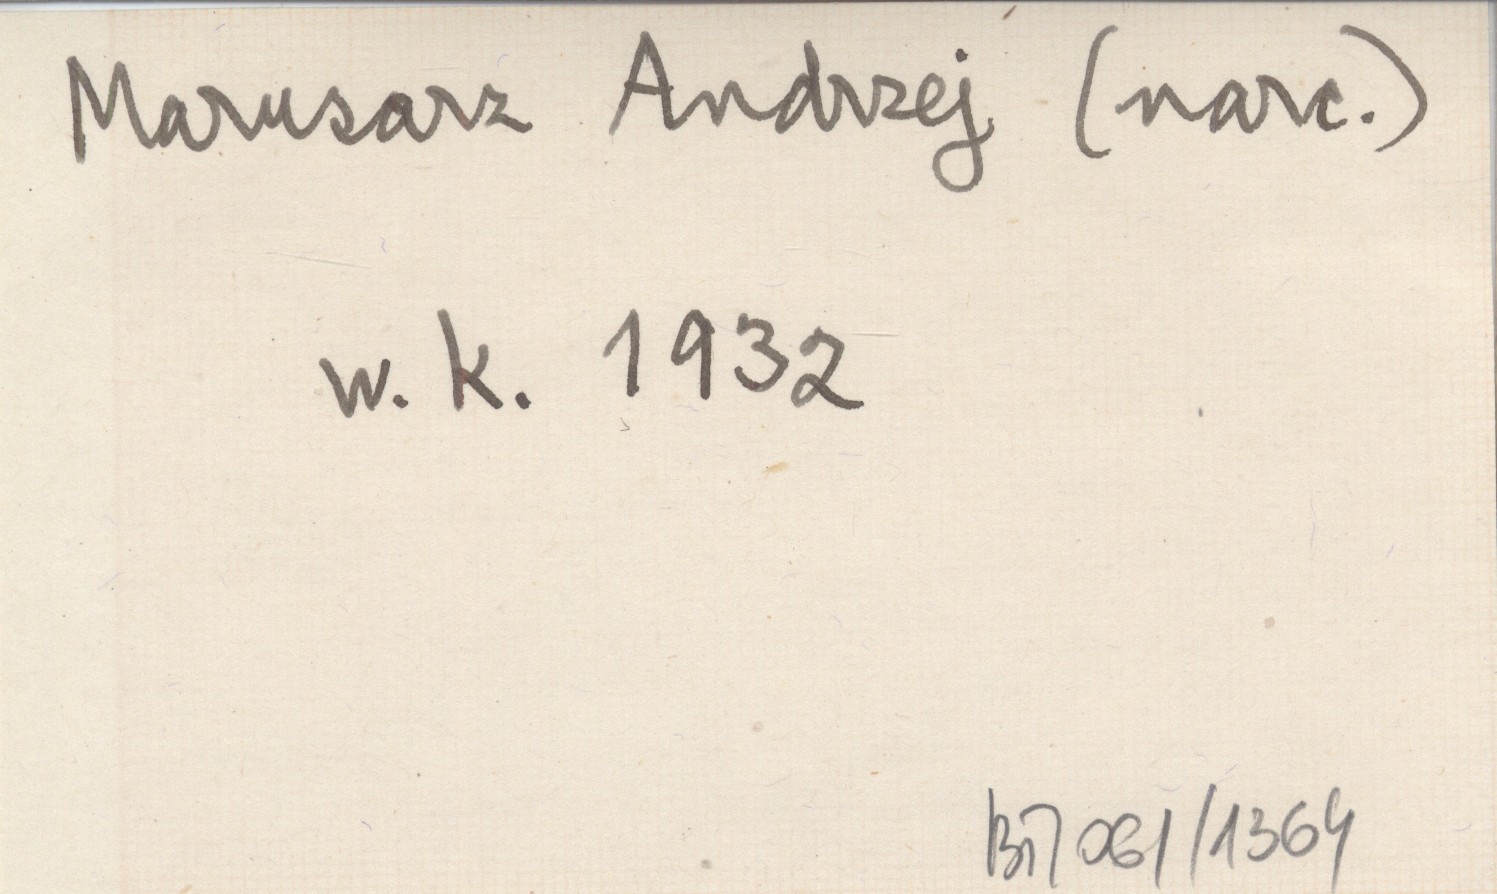 Marusarz Andrzej (narc.)
w. k. 1932
061/1364